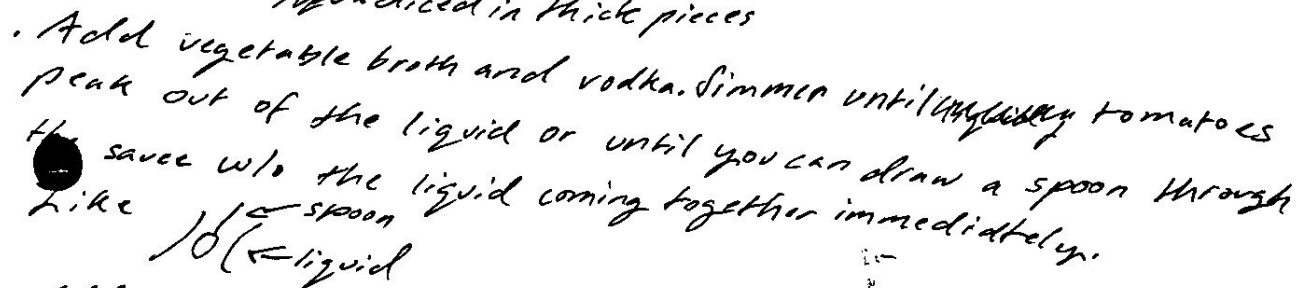 diced in thick pieces
. Add vegetable broth and vodka. Simmer until tomatoes
peak out of the liquid or until you can draw a spoon through
the sauce w/o the liquid coming together immediately.
Like
← spoon
← liquid